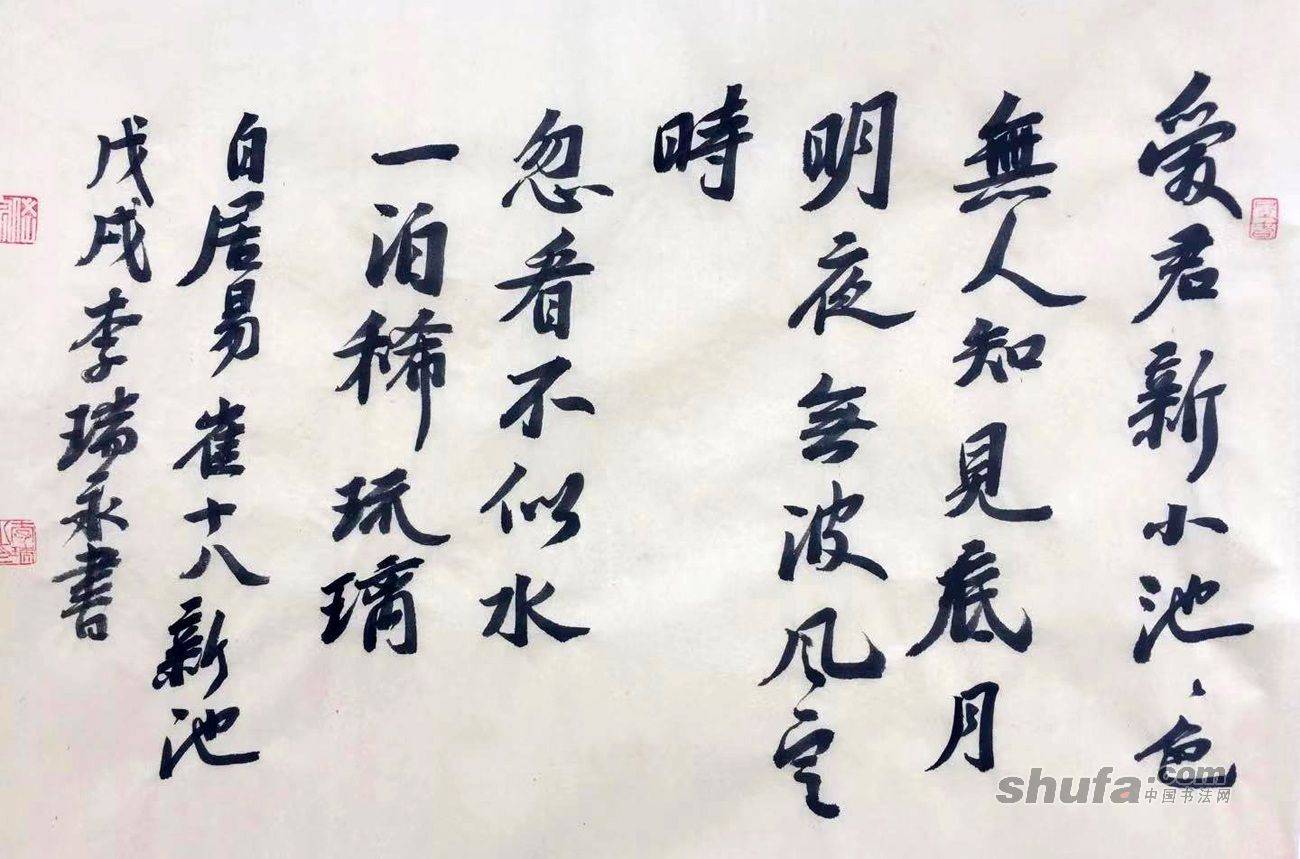 愛君新小池、色
無人知見底月
明夜無波風定
時
忽看不似水
一泊稀琉璃
白居易崔十八新池
戊戌李瑞永書
shufa.com
中国书法网